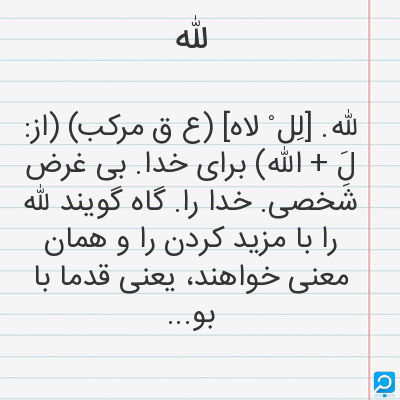 لله
لله. [لِل ْ لاه] (ع ق مرکب) (از:
لَِ + الله) برای خدا. بی غرض
شخصی. خدا را. گاه گویند لله
را با مزید کردن را و همان
معنی خواهند، یعنی قدما با
بو...